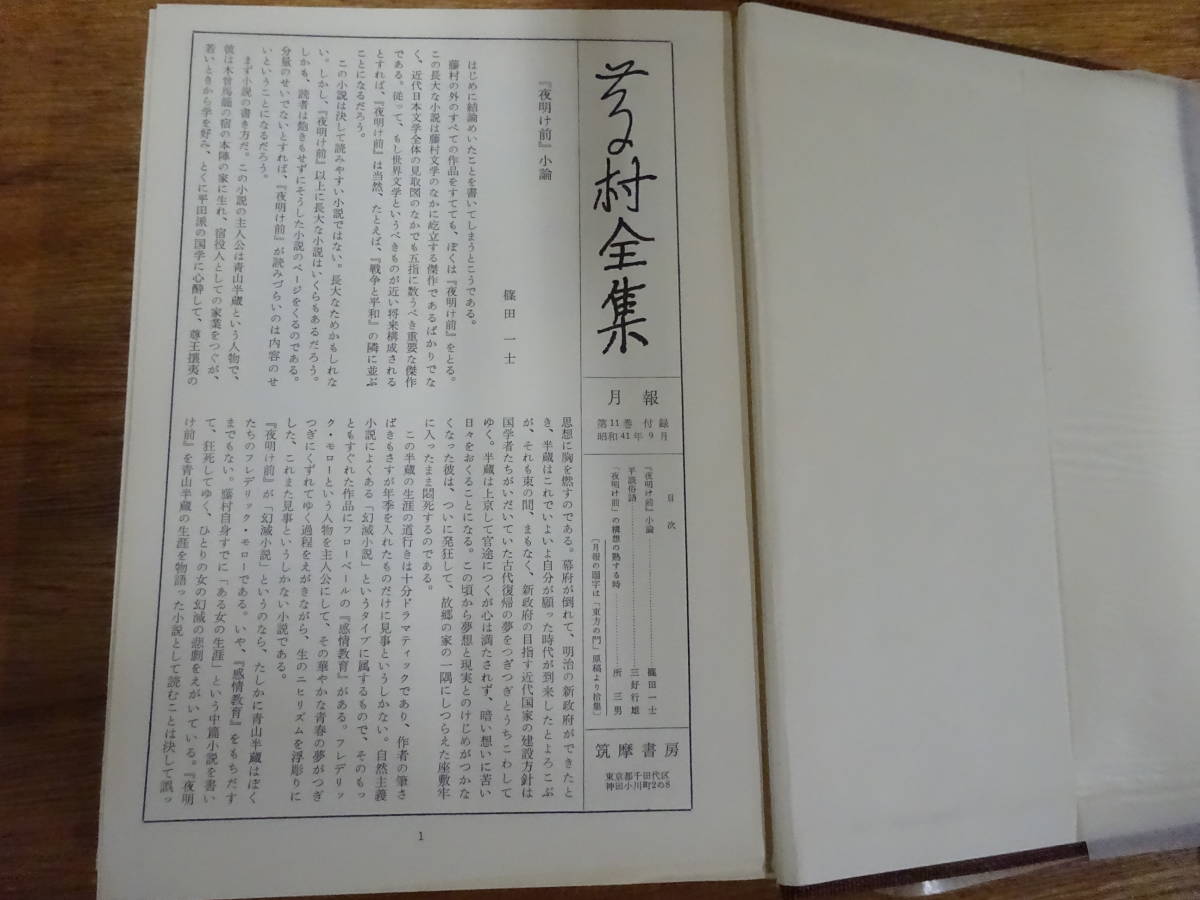 藤村全集
月報
第11巻付録
昭和41年9月
目次
『夜明け前』小論……………篠田一士
平談俗語……………三好行雄
『夜明け前』の構想の熟する時……………所三男
〔月報の題字は「東方の門」原稿より拾集〕
筑摩書房
東京都千田代区
神田小川町2の8
『夜明け前』小論
篠田一士
はじめに結論めいたことを書いてしまうとこうである。
藤村の外のすべての作品をすてても、ぼくは『夜明け前』をとる。
この長大な小説は藤村文学のなかに屹立する傑作であるばかりでな
く、近代日本文学全体の見取図のなかでも五指に数うべき重要な傑作
である。従って、もし世界文学というべきものが近い将来構成される
とすれば、『夜明け前』は当然、たとえば、『戦争と平和』の隣に並ぶ
ことになるだろう。
この小説は決して読みやすい小説ではない。長大なためかもしれな
い。しかし、『夜明け前』以上に長大な小説はいくらもあるだろう。
しかも、読者は飽きもせずにそうした小説のページをくるのである。
分量のせいでないとすれば、『夜明け前』が読みづらいのは内容のせ
いということになるだろう。
まず小説の書き方だ。この小説の主人公は青山半蔵という人物で、
彼は木曾馬籠の宿の本陣の家に生れ、宿役人としての家業をつぐが、
若いときから学を好み、とくに平田派の国学に心酔して、尊王攘夷の
思想に胸を燃すのである。幕府が倒れて、明治の新政府ができたと
き、半蔵はこれでいよいよ自分が願った時代が到来したとよろこぶ
が、それも束の間、まもなく、新政府の目指す近代国家の建設方針は
国学者たちがいだいていた古代復帰の夢をつぎつぎとうちこわして
ゆく。半蔵は上京して官途につくが心は満たされず、暗い想いに苦い
日々をおくることになる。この頃から夢想と現実とのけじめがつかな
くなった彼は、ついに発狂して、故郷の家の一隅にしつらえた座敷牢
に入ったまま悶死するのである。
この半蔵の生涯の道行きは十分ドラマティックであり、作者の筆さ
ばきもさすが年季を入れたものだけに見事というしかない。自然主義
小説によくある「幻滅小説」というタイプに属するもので、そのもっ
ともすぐれた作品にフローベールの『感情教育』がある。フレデリッ
ク・モローという人物を主人公にして、その華やかな青春の夢がつぎ
つぎにくずれてゆく過程をえがきながら、生のニヒリズムを浮彫りに
した、これまた見事というしかない小説である。
『夜明け前』が「幻滅小説」というのなら、たしかに青山半蔵はぼく
たちのフレデリック・モローである。いや、『感情教育』をもちだす
までもない。藤村自身すでに「ある女の生涯」という中篇小説を書い
て、狂死してゆく、ひとりの女の幻滅の悲劇をえがいている。『夜明
け前』を青山半蔵の生涯を物語った小説として読むことは決して誤っ
1